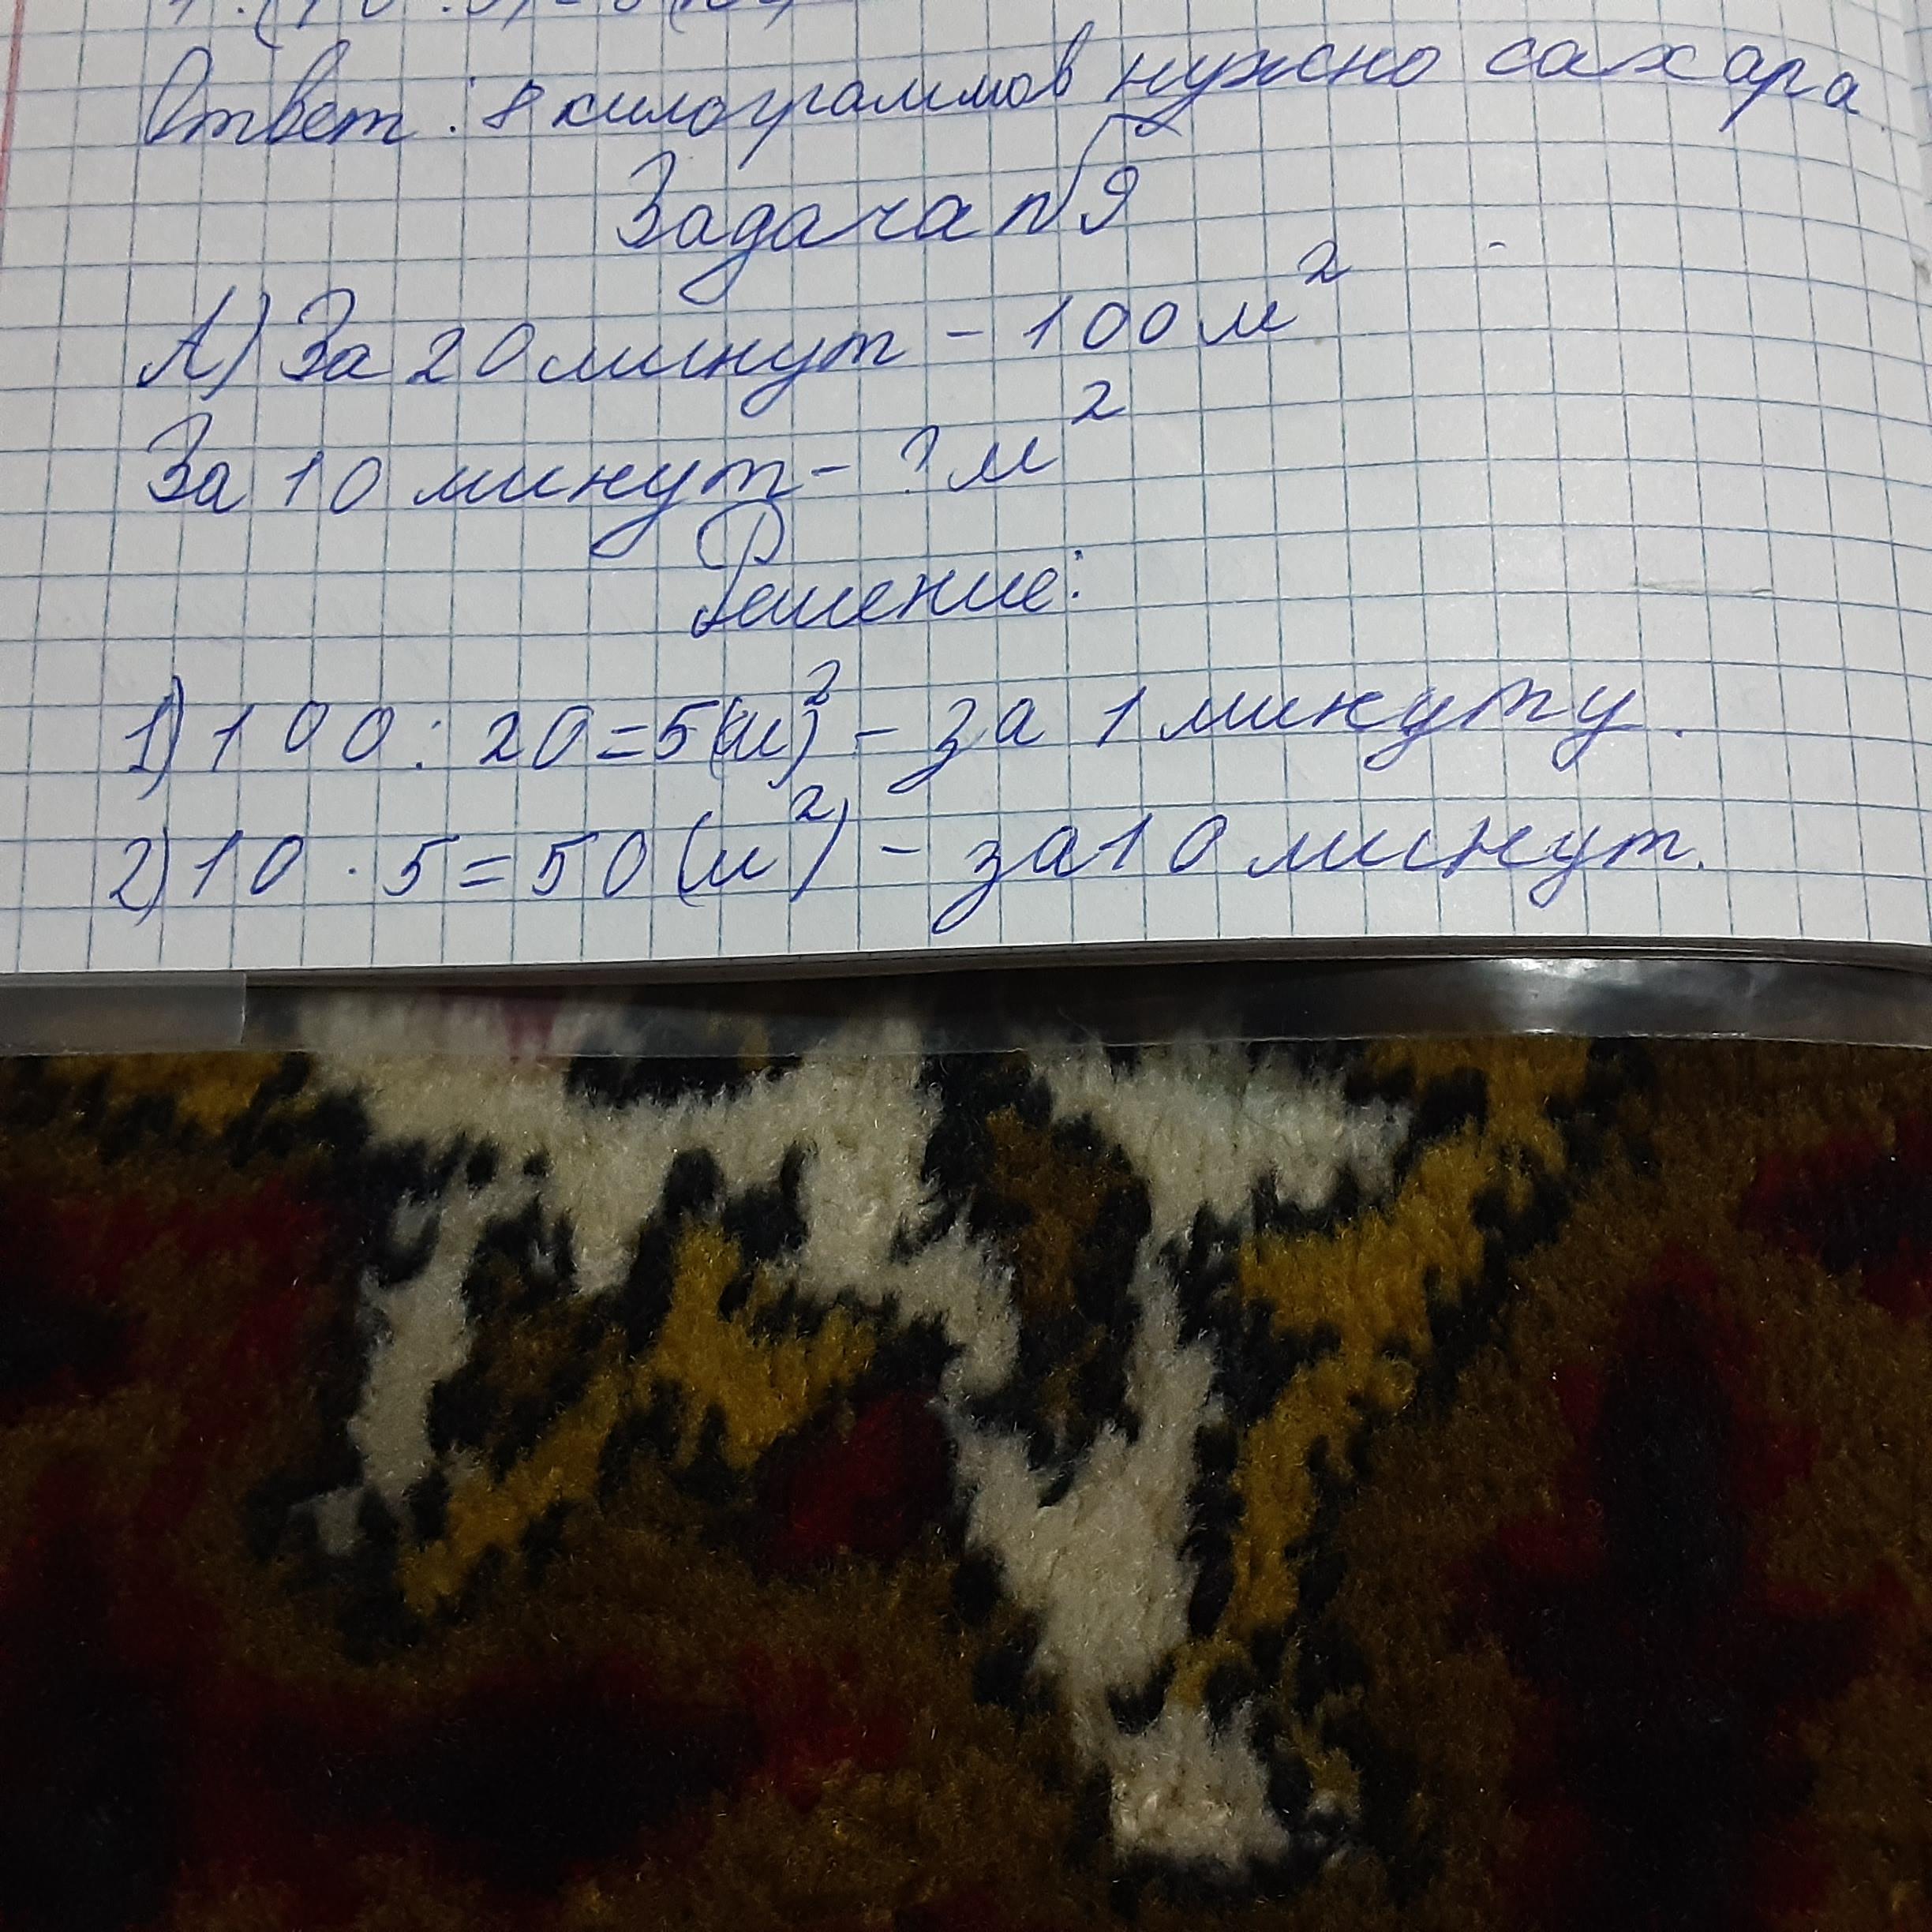 Ответ: 8 килограммов нужно сахара
Задача №9
А) За 20 минут - 100 м²
За 10 минут - ? м²
Решение:
1) 100 : 20 = 5(м)² - за 1 минуту.
2) 10 · 5 = 50 (м²) - за 10 минут.